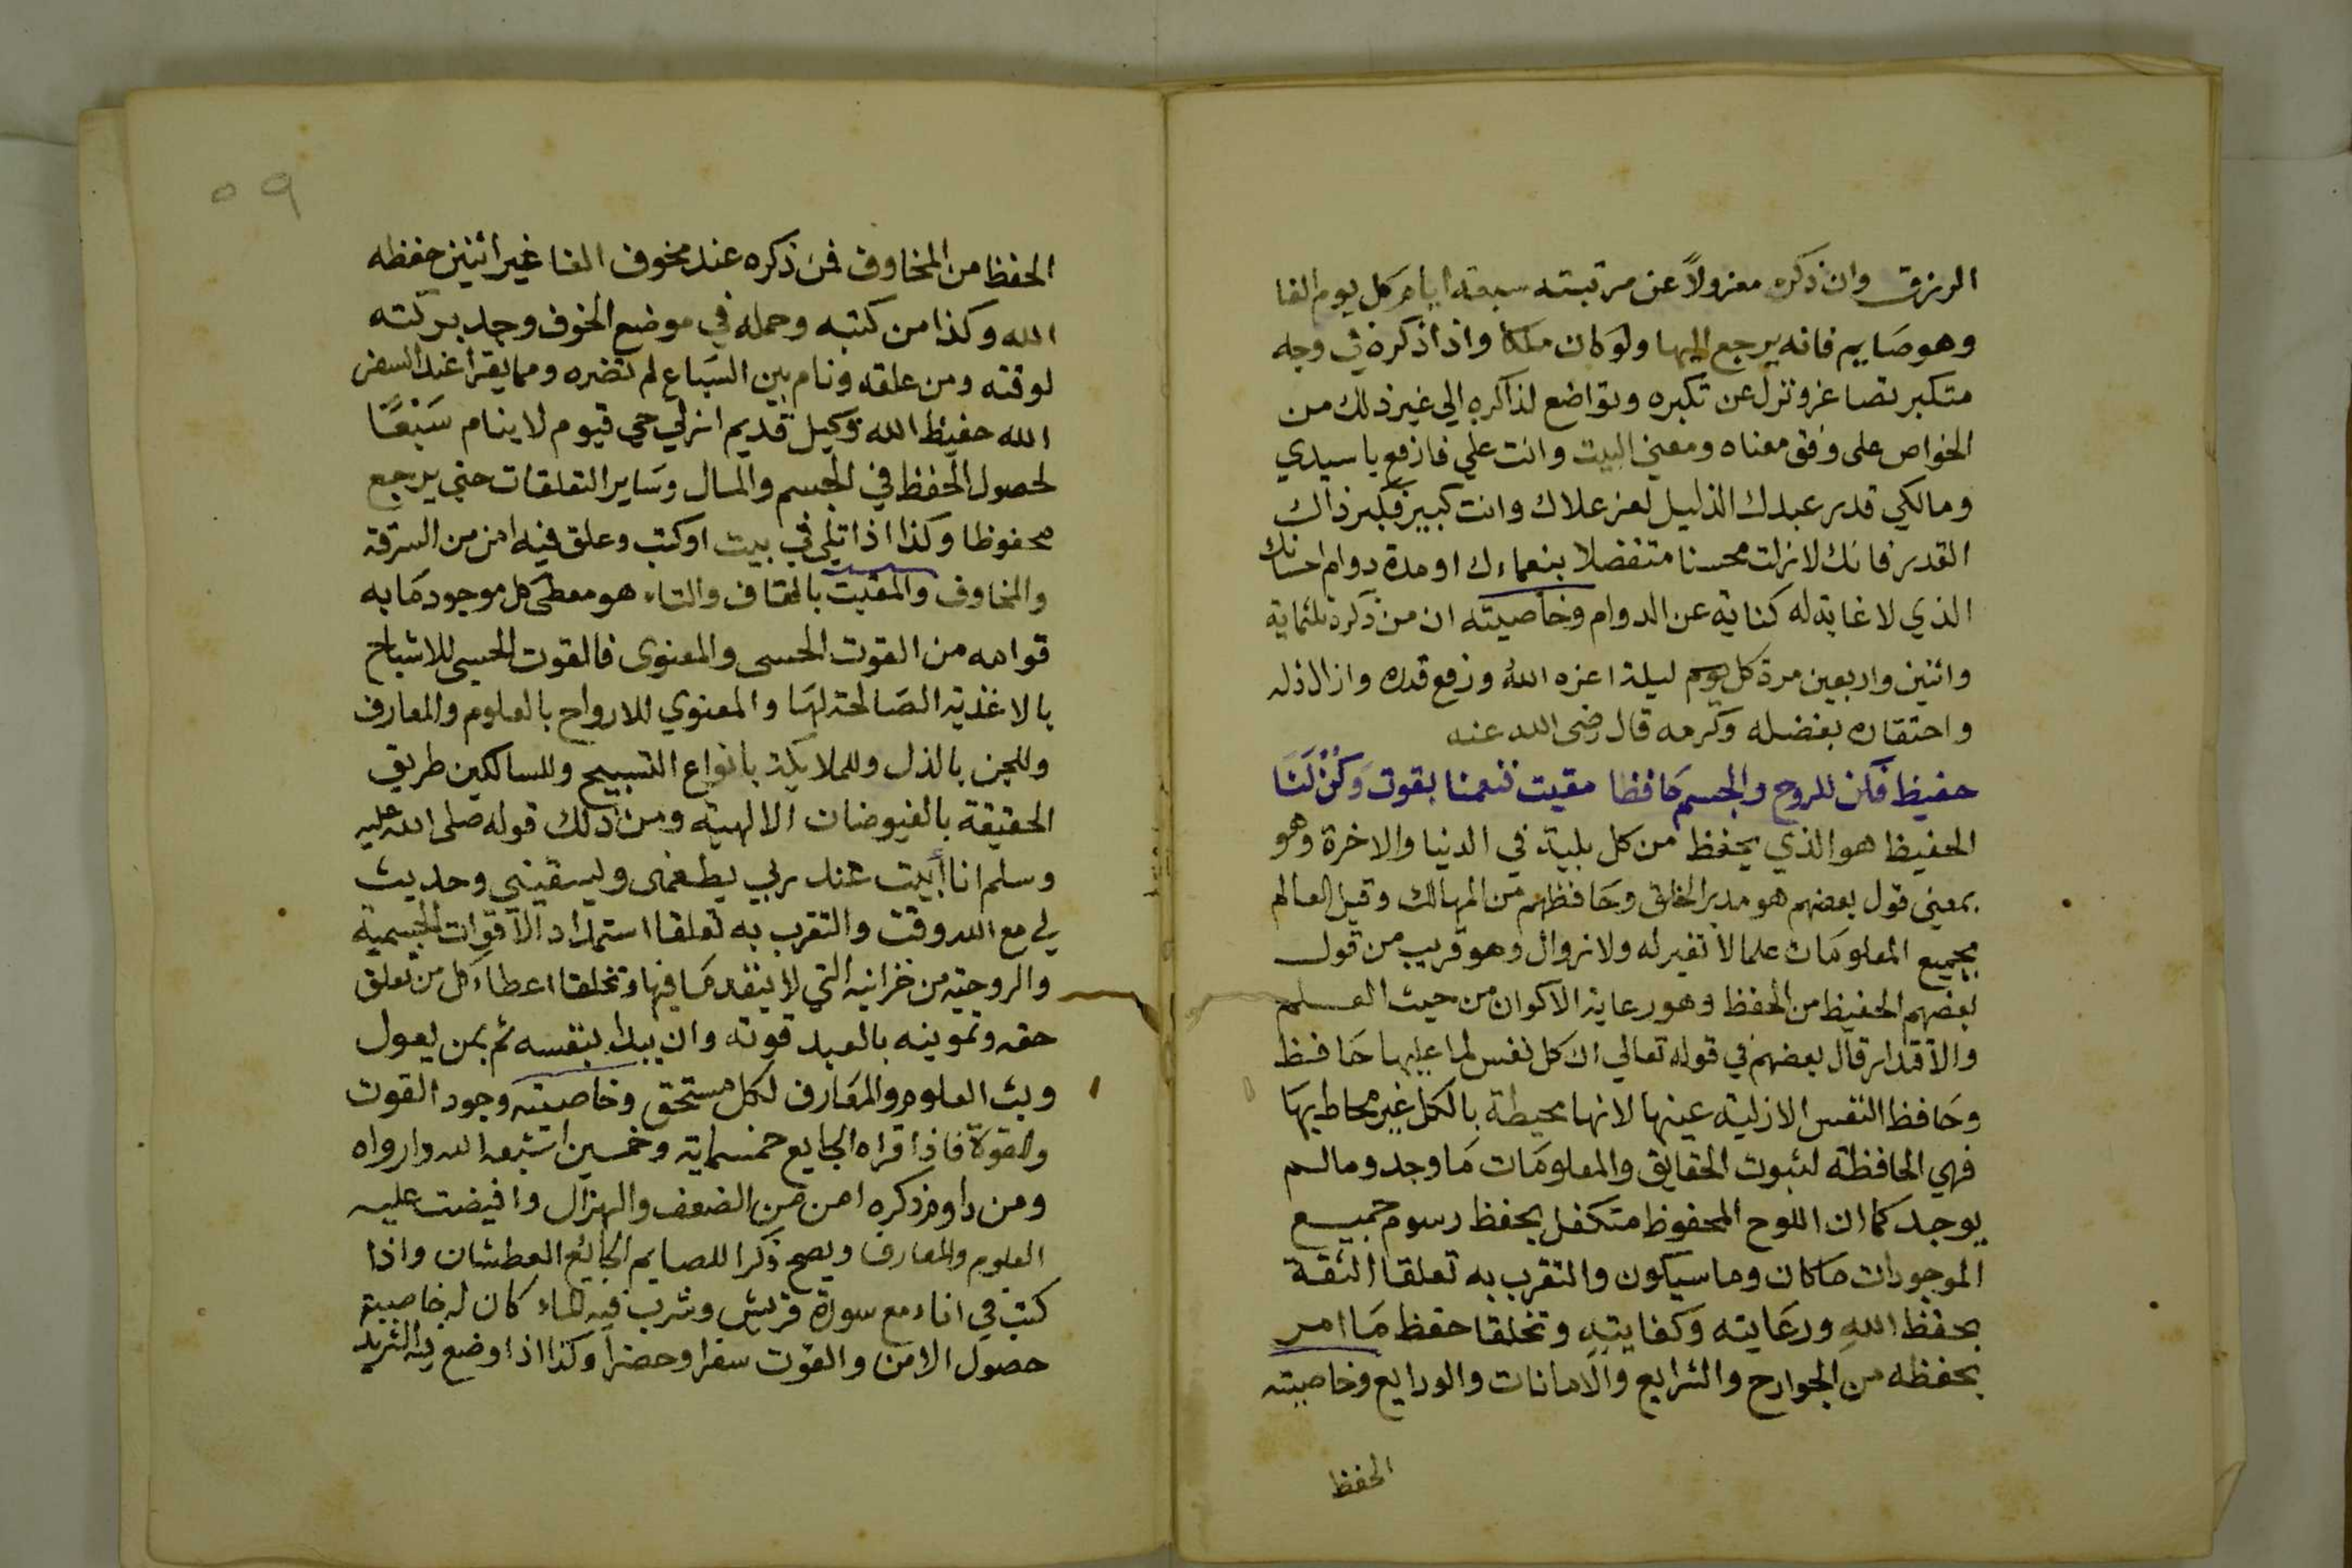 الرزق وان ذكره معزولاً عن مرتبته سبعة ايام كل يوم الفا
وهو صَايم فانه يرجع اليها ولو كان ملكا واذا ذكره في وجه
متكبر تصاغر ونزل عن تكبره وتواضع لذاكره الي غير ذلك من
الخواص على وفق معناه ومعني البيت وانت علي فارفع يا سيدي
ومالكي قدر عبدك الذليل لعز علاك وانت كبير فكبر ذاك
القدر فانك لا زلت محسنا متفضلا بنعماءك او مدة دوام احسانك
الذي لا غاية له كناية عن الدوام وخاصيته ان من ذكره ثلثماية
واثنين واربعين مرة كل يوم ليلة اعزه اللهُ ورفع قدره وازال ذله
واحتقاره بفضله وكرمه قال رضى الله عنه
حفيظ فكن للروح والجسم حَافظا مقيت فنعمنا بقوت وَكُنْ لَنَا
الحفيظ هو الذي يحفظ من كل بلية في الدنيا والاخرة وهو
بمعني قول بعضهم هو مدبر الخلق وحَافظهم من المهالك وقيل العالم
بجميع المعلومَات علما لا تغير له ولا زوال وهو قريب من قول
بعضهم الحفيظ من الحفظ وهو رعاية الاكوان من حيث العلم
والاقتدار قال بعضهم في قوله تعالي ان كل نفس لما عليها حَافظ
وحَافظ النفس الازلية عينها لانها محيطة بالكل غير محاط بهَا
فهي الحافظة لثبوت الحقايق والمعلومَات مَا وجد وما لم
يوجد كما ان اللوح المحفوظ متكفل بحفظ رسوم جميع
الموجودات مَا كان وما سيكون والتقرب به تعلقا الثقة
بحفظ اللهِ ورعَايته وكفايتهِ وتخلقا حفظ مَا امر
بحفظه من الجوارح والشرايع والامانات والودايع وخاصيته
الحفظ
٥٩
الحفظ من المخاوف فمن ذكره عند مخوف الفا غير اثنين حفظه
الله وكذا من كتبه وحمله في موضع الخوف وجد بركته
لوقته ومن علقه ونام بين السَباع لم تضره ومما يقرا عند السفر
الله حفيظ الله وكيل قديم ازلي حي قيوم لا ينام سَبْعًا
لحصول الحفظ في الجسم والمال وسَاير التعلقات حتي يرجع
محفوظا وكذا اذا تلي في بيت او كتب وعلق فيه امن من السرقة
والمخاوف والمقيت بالقاف والتاء هو معطى كل موجود مَا به
قوامه من القوت الحسى والمعنوى فالقوت الحسى للاشباح
بالاغذية الصَالحة لهَا والمعنوي للارواح بالعلوم والمعارف
وللجن بالذل وللملايكة بانواع التسبيح وللسالكين طريق
الحقيقة بالفيوضات الالهية ومن ذلك قوله صلى الله عليه
وسلم انا أبيت عند ربي يطعمى ويسقيني وحديث
لي مع الله وقت والتقرب به تعلقا استمداد الاقوات الجسمية
والروحية من خزاينه التي لا ينفد مَا فيها وتخلقا اعطاء كل من تعلق
حقه وتموينه بالعبد قوته وان يبدا بنفسه ثم بمن يعول
وبث العلوم والمعَارف لكل مستحق وخاصيته وجود القوت
والقوة فاذا قراه الجايع خمسماية وخمسين اشبعه الله وارواه
ومن داوم ذكره امن من الضعف والهزال وافيضت عليه
العلوم والمعارف ويصح ذكرا للصايم الجائع العطشان واذا
كتب في اناء مع سورة قريش وشرب فيه الماء كان له خاصيته
حصول الامن والقوت سفرا وحضراً وكذا اذا وضع فيه الثريد